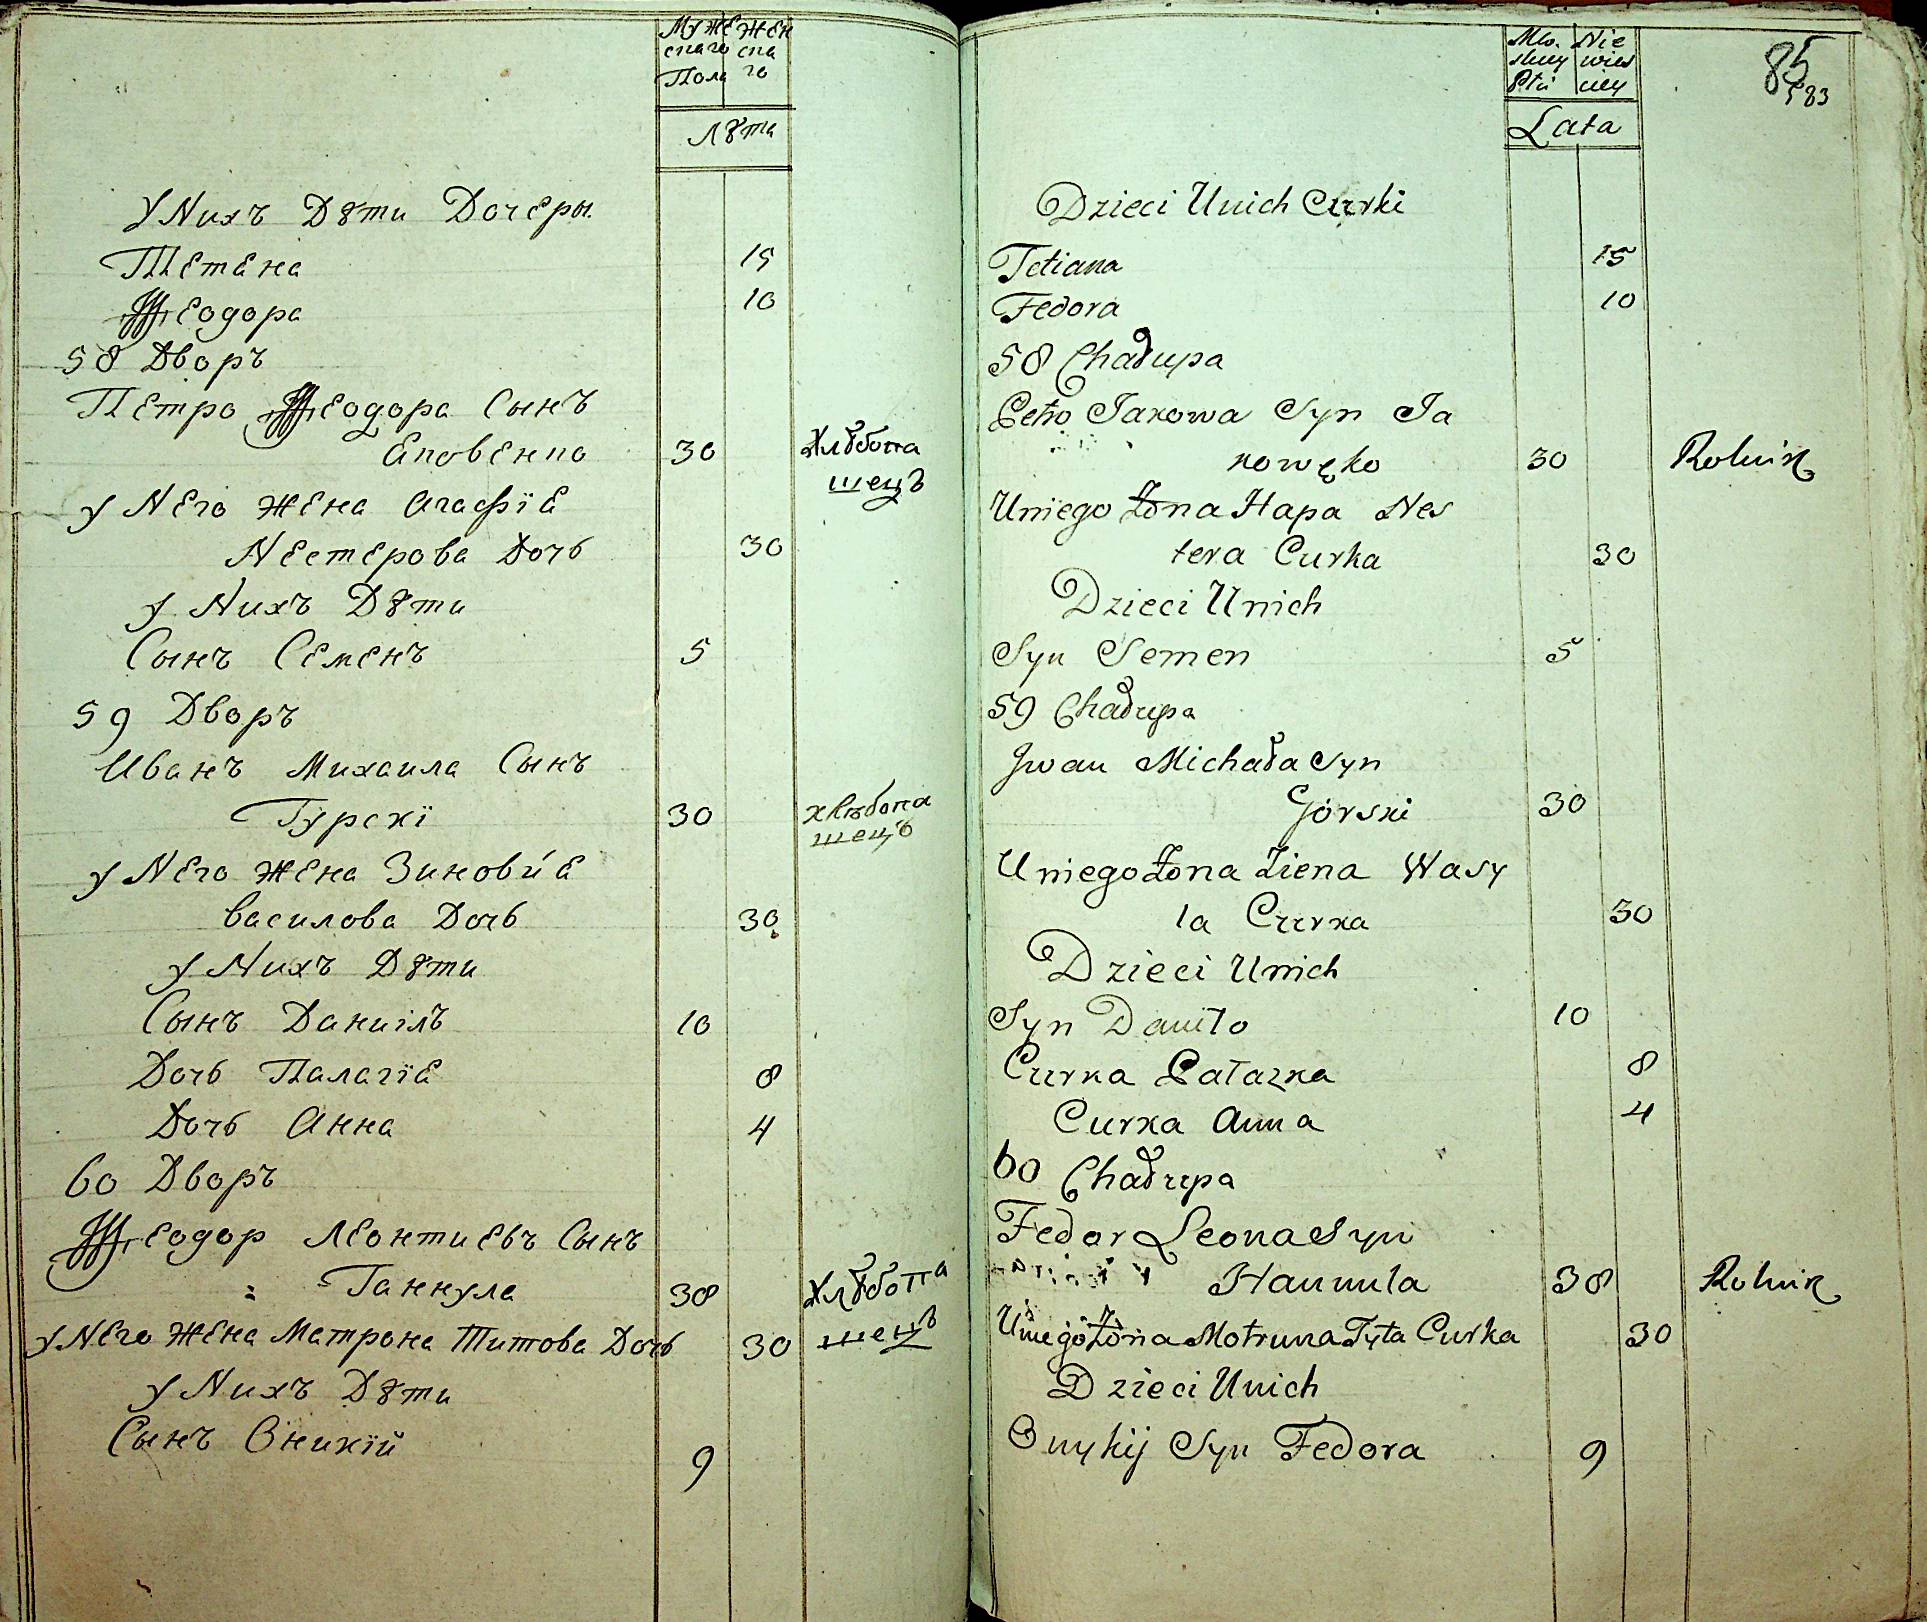 Муже Жен
скаго ска
Пола го
Лѣта
У Nихъ Дѣти Дочеры
Тетѣна 15
Ѳеодора 10
58 Дворъ
Петро Ѳеодора Сынъ
Яковенко 30 Хлѣбопа
шецъ
у Nего жена Агафїя
Nестерова Дочь 30
у Nихъ Дѣти
Сынъ Семенъ 5
59 Дворъ
Иванъ Михаила Сынъ
Гурскї 30 хлѣбопа
шецъ
у Nего жена Зиновия
василова Дочь 30
у Nихъ Дѣти
Сынъ Даниілъ 10
Дочь Палагїя 8
Дочь Анна 4
60 Дворъ
Ѳеодор Леонтиевъ Сынъ
Ганнула 38 Хлѣбопа
шецъ
у Nего жена Матрона Титова Дочь 30
у Nихъ Дѣти
Сынъ Оникій 9
85
83
Mę. Nie
skiey wies
Płci ciey
Lata
Dzieci Unich Curki
Tetiana 15
Fedora 10
58 Chałupa
Petro Jakowa Syn Ja
kowęko 30 Rolnik
Uniego Żona Hapa Nes
tera Curka 30
Dzieci Unich
Syn Semen 5
59 Chałupa
Jwan Michała Syn
Górski 30
Uniego Żona Ziena Wasy
la Curka 30
Dzieci Unich
Syn Daniło 10
Curka Pałazka 8
Curka Anna 4
60 Chałupa
Fedor Leona Syn
Hannula 38 Rolnik
Uniego Żona Motruna Tyta Curka 30
Dzieci Unich
Onykij Syn Fedora 9